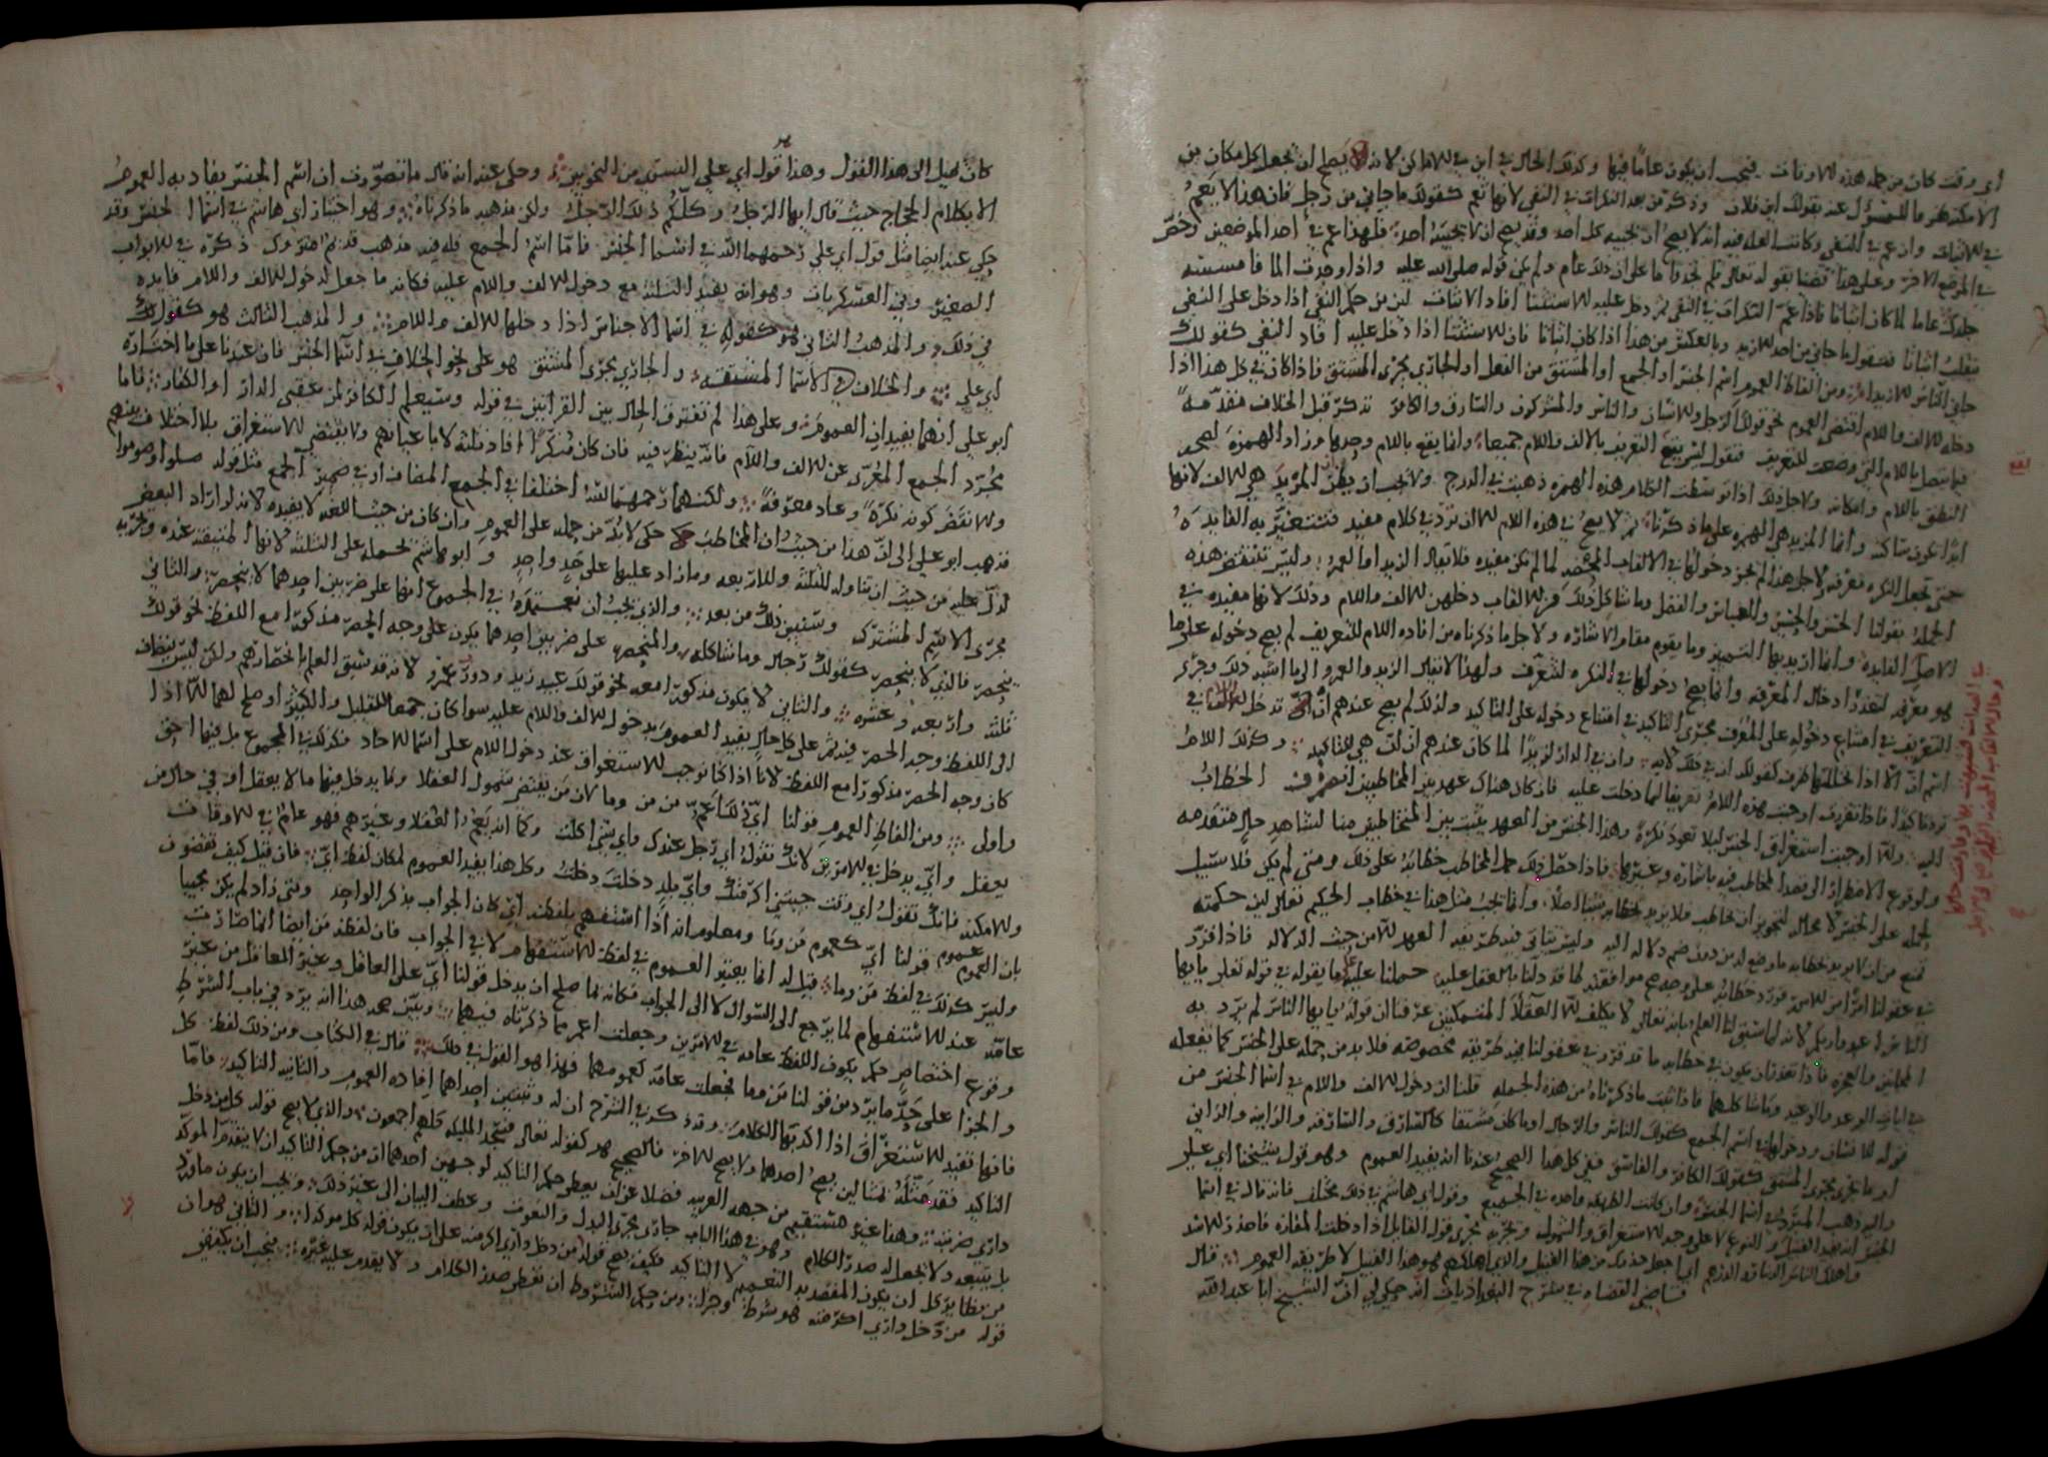 أي وقت كان من جملة هذه الاوقات فيجب ان يكون عاما فيها وكذلك الحال في اين في الاماكن لانه يصلح ان يجعل كل مكان من
الامكنة ما للمسؤل عنه بقولك اين فلان وذكر من بعد النكرات في النفي لانها تعم كقولك ما جاني من رجل فان هذا لا يعم
في الاثبات وان عم في النفي وكانت العلة فيه انه لا يصح ان يجيبه كل احد وقد يصح ان لا يجيبه احد فلهذا عم في احد الموضعين وخص
في الموضع الاخر وعلى هذا قضينا بقوله تعالى فلم تجدوا ما على ان ذلك عام ولم يكن قوله صلى الله عليه واذا وجدت الما فامسسه
جلدك عاما لما كان اثباتا فاذا عم النكرات في النفي ثم دخل عليه الاستثنا افاد الاثبات لان من حكم النفي اذا دخل على النفي
ينقلب اثباتا فتقول ما جاني من احد الا زيد وبالعكس من هذا اذا كان اثباتا فان الاستثنا اذا دخل عليه افاد النفي كقولك
جاني الناس الا زيدا ومن الفاظ العموم اسم الجنس او الجمع او المشتق من الفعل او الجاري مجرى المشتق فاذا كان في كل هذا اذا
دخله الالف واللام اقتضى العموم نحو قولك الرجل والانسان والناس والمشركون والسارق والكافر نذكر قبل الخلاف مقدمة
فيما يتصل باللام التي وضعت للتعريف فنقول ليس يقع التعريف بالالف واللام جميعا وانما يقع باللام وحدها وزاد الهمزة ليصح
النطق باللام وامكانه ولاجل ذلك اذا توسطت الكلام هذه الهمزة ذهبت في الدرج ولا يجب ان يظن المزيد هي الالف لانها
ابدا تكون ساكنة وانما المزيد هي الهمزة على ما ذكرناه ثم لا يصح في هذه اللام الا ان ترد في كلام مفيد فتتغير به الفايدة
حتى تجعل النكرة معرفة ولاجل هذا لم يجز دخولها في الالقاب المحضة لما لم تكن مفيدة فلا يقال الزيد اما العمر وليس ينقض هذه
الجملة بقولنا الحسن والحسين والعباس والفضل وما شاكل ذلك فان الالقاب دخلهن الالف واللام وذلك لانها مفيدة في
الاصل الفايدة وانما اريد بها التمييز وما يقوم مقام الاشارة ولاجل ما ذكرناه من افادة اللام للتعريف لم يصح دخوله على ما
هو معرفة لتعذر ادخال المعرفة وانما يصح دخولها في النكرة لتتعرف ولهذا لا يقال الزيد والعمرو الى ما اشبه ذلك وجرى
التعريف في امتناع دخوله على المعرف مجرى التاكيد في امتناع دخوله على التاكيد ولذلك لم يصح عندهم ان تدخل اللام في
اسم ان الا اذا تخللها ظرف كقولك ان في ذلك لاية وان في الدار لزيدا لما كان عندهم ان ان هي للتاكيد وكذلك اللام
ترد تاكيدا فاذا تقررت اوجبت هذه اللام تعريفا لما دخلت عليه فان كان هناك عهد بين المخاطبين انصرف الخطاب
اليه والا اوجبت استغراق الجنس ليلا تعود نكرة وهذا الجنس من العهد يثبت بين المتخاطبين منا لشاهد حال متقدمة
ولوقوع الاضطرار الى قصد المخاطب فيه باشارة وغيرها فاذا حصل ذلك حمل المخاطب خطابه على ذلك ومتى لم يكن فلا سبيل
لحمله على الجنس لا محالة لتجويز ان يخاطب فلا يريد بخطابه شيئا اصلا وانما يجب مثل هذا في خطاب الحكيم تعالى لان حكمته
تمنع من ان لا يريد بخطابه ما وضع له من دون ضم دلالة اليه وليس يتاتى فيه طريقة العهد الا من حيث الدلالة فاذا قرر
في عقولنا امرا من الامور فورد خطابه على وجه موافقته لما قد دلنا بالعقل عليه حملنا عليه ما يقوله في قوله تعالى يا ايها
الناس اعبدوا ربكم لانه لما سبق لنا العلم بانه تعالى لا يكلف الا العقلا المتمكنين عرفنا ان قوله يا ايها الناس لم يرد به
المجانين والعجزة فاذا تعذر ان يكون في خطابه ما قد تقرر في عقولنا فيه طريقة مخصوصة فلا بد من حمله على الجنس كما نفعله
في ايات الوعد والوعيد وما شاكلها فاذا ثبت ما ذكرناه من هذه الجملة قلنا ان دخول الالف واللام في اسما الجنس من
قوله الانسان ودخولها في اسم الجمع كقولك الناس والرجال او ما كان مشتقا كالسارق والسارقة والزانية والزاني
او ما يجري مجرى المشتق كقولك الكافر والفاسق ففي كل هذا الصحيح عندنا انه يفيد العموم وهو قول شيخنا ابي علي
واليه ذهب المبرد في اسما الجنس وان كانت الطريقة واحدة في الجميع وقول ابي هاشم في ذلك مختلف فانه قال في اسما
الجنس انه يفيد القبيل والنوع لا على وجه الاستغراق والشمول ويجريه مجرى قول القايل اذا دخلت المفازة فاحذر الاسد
واهلك الناس الدينار والدرهم انما جعل حذرك من هذا القبيل والذي اهلكهم هو هذا القبيل لا طريقة العموم قال
قاضي القضاة في شرح البغداذيات انه حكي لي ان الشيخ ابا عبدالله
كان يميل الى هذا القول وهذا قول ابي علي الفسوي من النحويين وحكي عنه انه قال ما تصورت ان اسم الجنس يفاد به العموم
الا بكلام الزجاج حيث قال ايها الرجل وكلكم ذلك الرجل ولان مذهبه ما ذكرناه وهو اختيار ابي هاشم في اسما الجنس وقد
حكي عنه ايضا مثل قول ابي علي رحمهما الله في اسما الجنس فاما اسم الجمع فله فيه مذهب قديم متروك ذكره في الابواب
الصغير وفي العسكريات وهو انه يفيد الثلثة مع دخول الالف واللام عليه فكانه ما جعل لدخول الالف واللام فايدة
في ذلك والمذهب الثاني هو كقوله في اسما الاجناس اذا دخلها الالف واللام والمذهب الثالث هو كقول
ابي علي والخلاف في الاسما المشتقة والجاري مجرى المشتق هو على نحو الخلاف في اسما الجنس فان عندنا على ما اختاره
ابو علي انهما يفيدان العموم وعلى هذا لم تفترق الحال بين القراتين في قوله وسيعلم الكافر لمن عقبى الدار او الكفار فاما
مجرد الجمع المعرى عن الالف واللام فانه ينظر فيه فان كان منكرا افاد ثلثة لا باعيانهم ولا يقتضي الاستغراق بلا اختلاف بينهم
والا نقض كونه نكرة وعاد معرفة ولكنهما رحمهما الله اختلفا في الجمع المضاف او في ضمير الجمع مثل قوله صلوا وصوموا
فذهب ابو علي الى ان هذا من حيث ان المخاطب حكيم لا بد من حمله على العموم وان كان من حيث اللغة لا يفيده لانه لو اراد البعض
لدل عليه من حيث ان يتناوله للثلثة وللاربعة وما زاد عليها على حد واحد وابو هاشم يحمله على الثلثة لانها المتيقنة عنده ويجريه
مجرى الاسم المشترك وسنبين ذلك من بعد والذي يجب ان نعتمده في الجموع انها على ضربين احدهما لا ينحصر والثاني
ينحصر فالذي لا ينحصر كقولك رجال وما شاكله والمنحصر على ضربين احدهما يكون على وجه الحصر مذكورا مع اللفظ نحو قولك
ثلثة واربعة وعشرة والثاني لا يكون مذكورا معه نحو قولك عبيد زيد ودور عمرو لانه قد سبق العلم بانحصارهم ولكن ليس ينضاف
الى اللفظ وجه الحصر فيه ثم على كل حال يفيد العموم بدخول الالف واللام عليه سوا كان جمعا للقليل والكثير او صلح لهما الا اذا
كان وجه الحصر مذكورا مع اللفظ لانا اذا كنا نوجب الاستغراق عند دخول اللام على اسما الاحاد فكذلك في المجموع بل فيها احق
واولى ومن الفاظ العموم قولنا اي وذلك اعم من من وما لان من يقتضي شمول العقلا وما يدخل فيها ما لا يعقل او في حال من
يعقل واي يدخل في الامرين لانك تقول اي رجل عندك واي شي اكلت وكما انه يعم العقلا وغيرهم فهو عام في الاوقات
والامكنة فانك تقول اي وقت جيتني اكرمتك واي بلد دخلت دخلت وكل هذا يفيد العموم لمكان لفظ اي فان قيل كيف تقضون
بان العموم عموم قولنا اي كعموم من وما ومعلوم انه اذا استفهم بلفظة اي كان الجواب بذكر الواحد ومتى زاد لم يكن مجيبا
وليس كذلك في لفظ من وما قيل له انما يعتبر العموم في لفظ الاستفهام لا في الجواب فان لفظة من ايضا انما صارت
عامة عند الاستفهام لما يرجع الى السوال لا الى الجواب فكانه لما صلح ان يدخل قولنا اي على العاقل وغير العاقل من غير
وقوع اختصاص حكم بكون اللفظ عامة في الامرين وجعلت اعم مما ذكرناه فيهما ويبين صحة هذا انه يرد في باب الشرط
والجزا على حد ما يرد من قولنا من وما فجعلت عامة كعمومهما فهذا هو القول في ذلك قال في الكتاب ومن ذلك لفظ كل
فانها تفيد الاستغراق اذا اكد بها الكلام وقد ذكر في الشرح ان له رتبتين احداهما افادة العموم والثانية التاكيد فاما
التاكيد فقد مثله بمثالين يصح احدهما ولا يصح الاخر فالصحيح هو كقوله تعالى فسجد المليكة كلهم اجمعون والذي لا يصح قوله كل من دخل
داري ضربته وهذا غير مستقيم من جهة العربية فضلا عن ان يعطى حكم التاكيد لوجهين احدهما ان من حكم التاكيد ان لا يتقدم المؤكد
بل يتبعه ولا يجعل له صدر الكلام وهو في هذا الباب جاري مجرى البدل والنعوت وعطف البيان الى غير ذلك ويجب ان يكون ما ورد
من نظاير كل ان يكون المقصد به التعميم لا التاكيد فكيف يصح قوله من دخل داري اكرمته على ان يكون قوله كل موكدا والثاني هو ان
قوله من دخل داري اكرمته هو شرط وجزا ومن حكم الشروط ان تعطى صدر الكلام ولا يقدم عليه غيره فيجب ان يكتفى